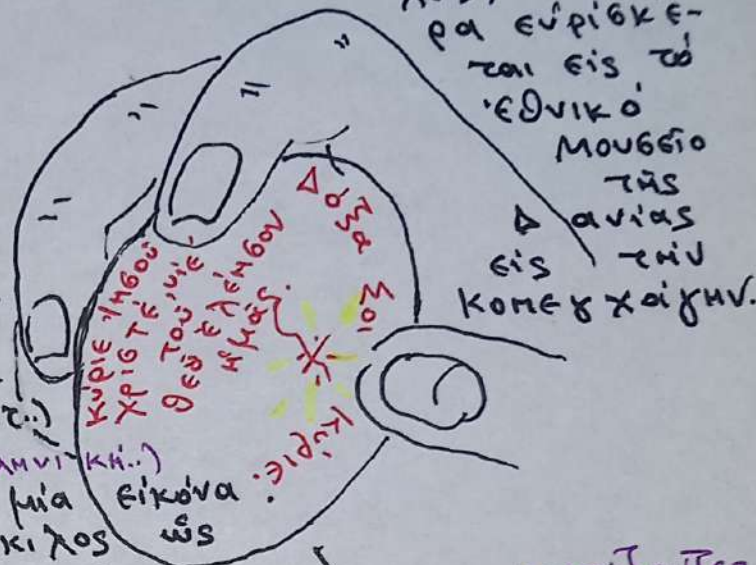 ρα εὑρίσκε-
ται εἰς τό
ἐθνικό
μουσεῖο
τῆς
Δανίας
εἰς τήν
κοπεγχάγην.
Κύριε Ἰησοῦ
Χριστέ υἱέ
τοῦ
θεοῦ ἐλέησον
ἡμᾶς.
Δόξα
Σοι
Κύριε.
μία εἰκόνα
ὡς